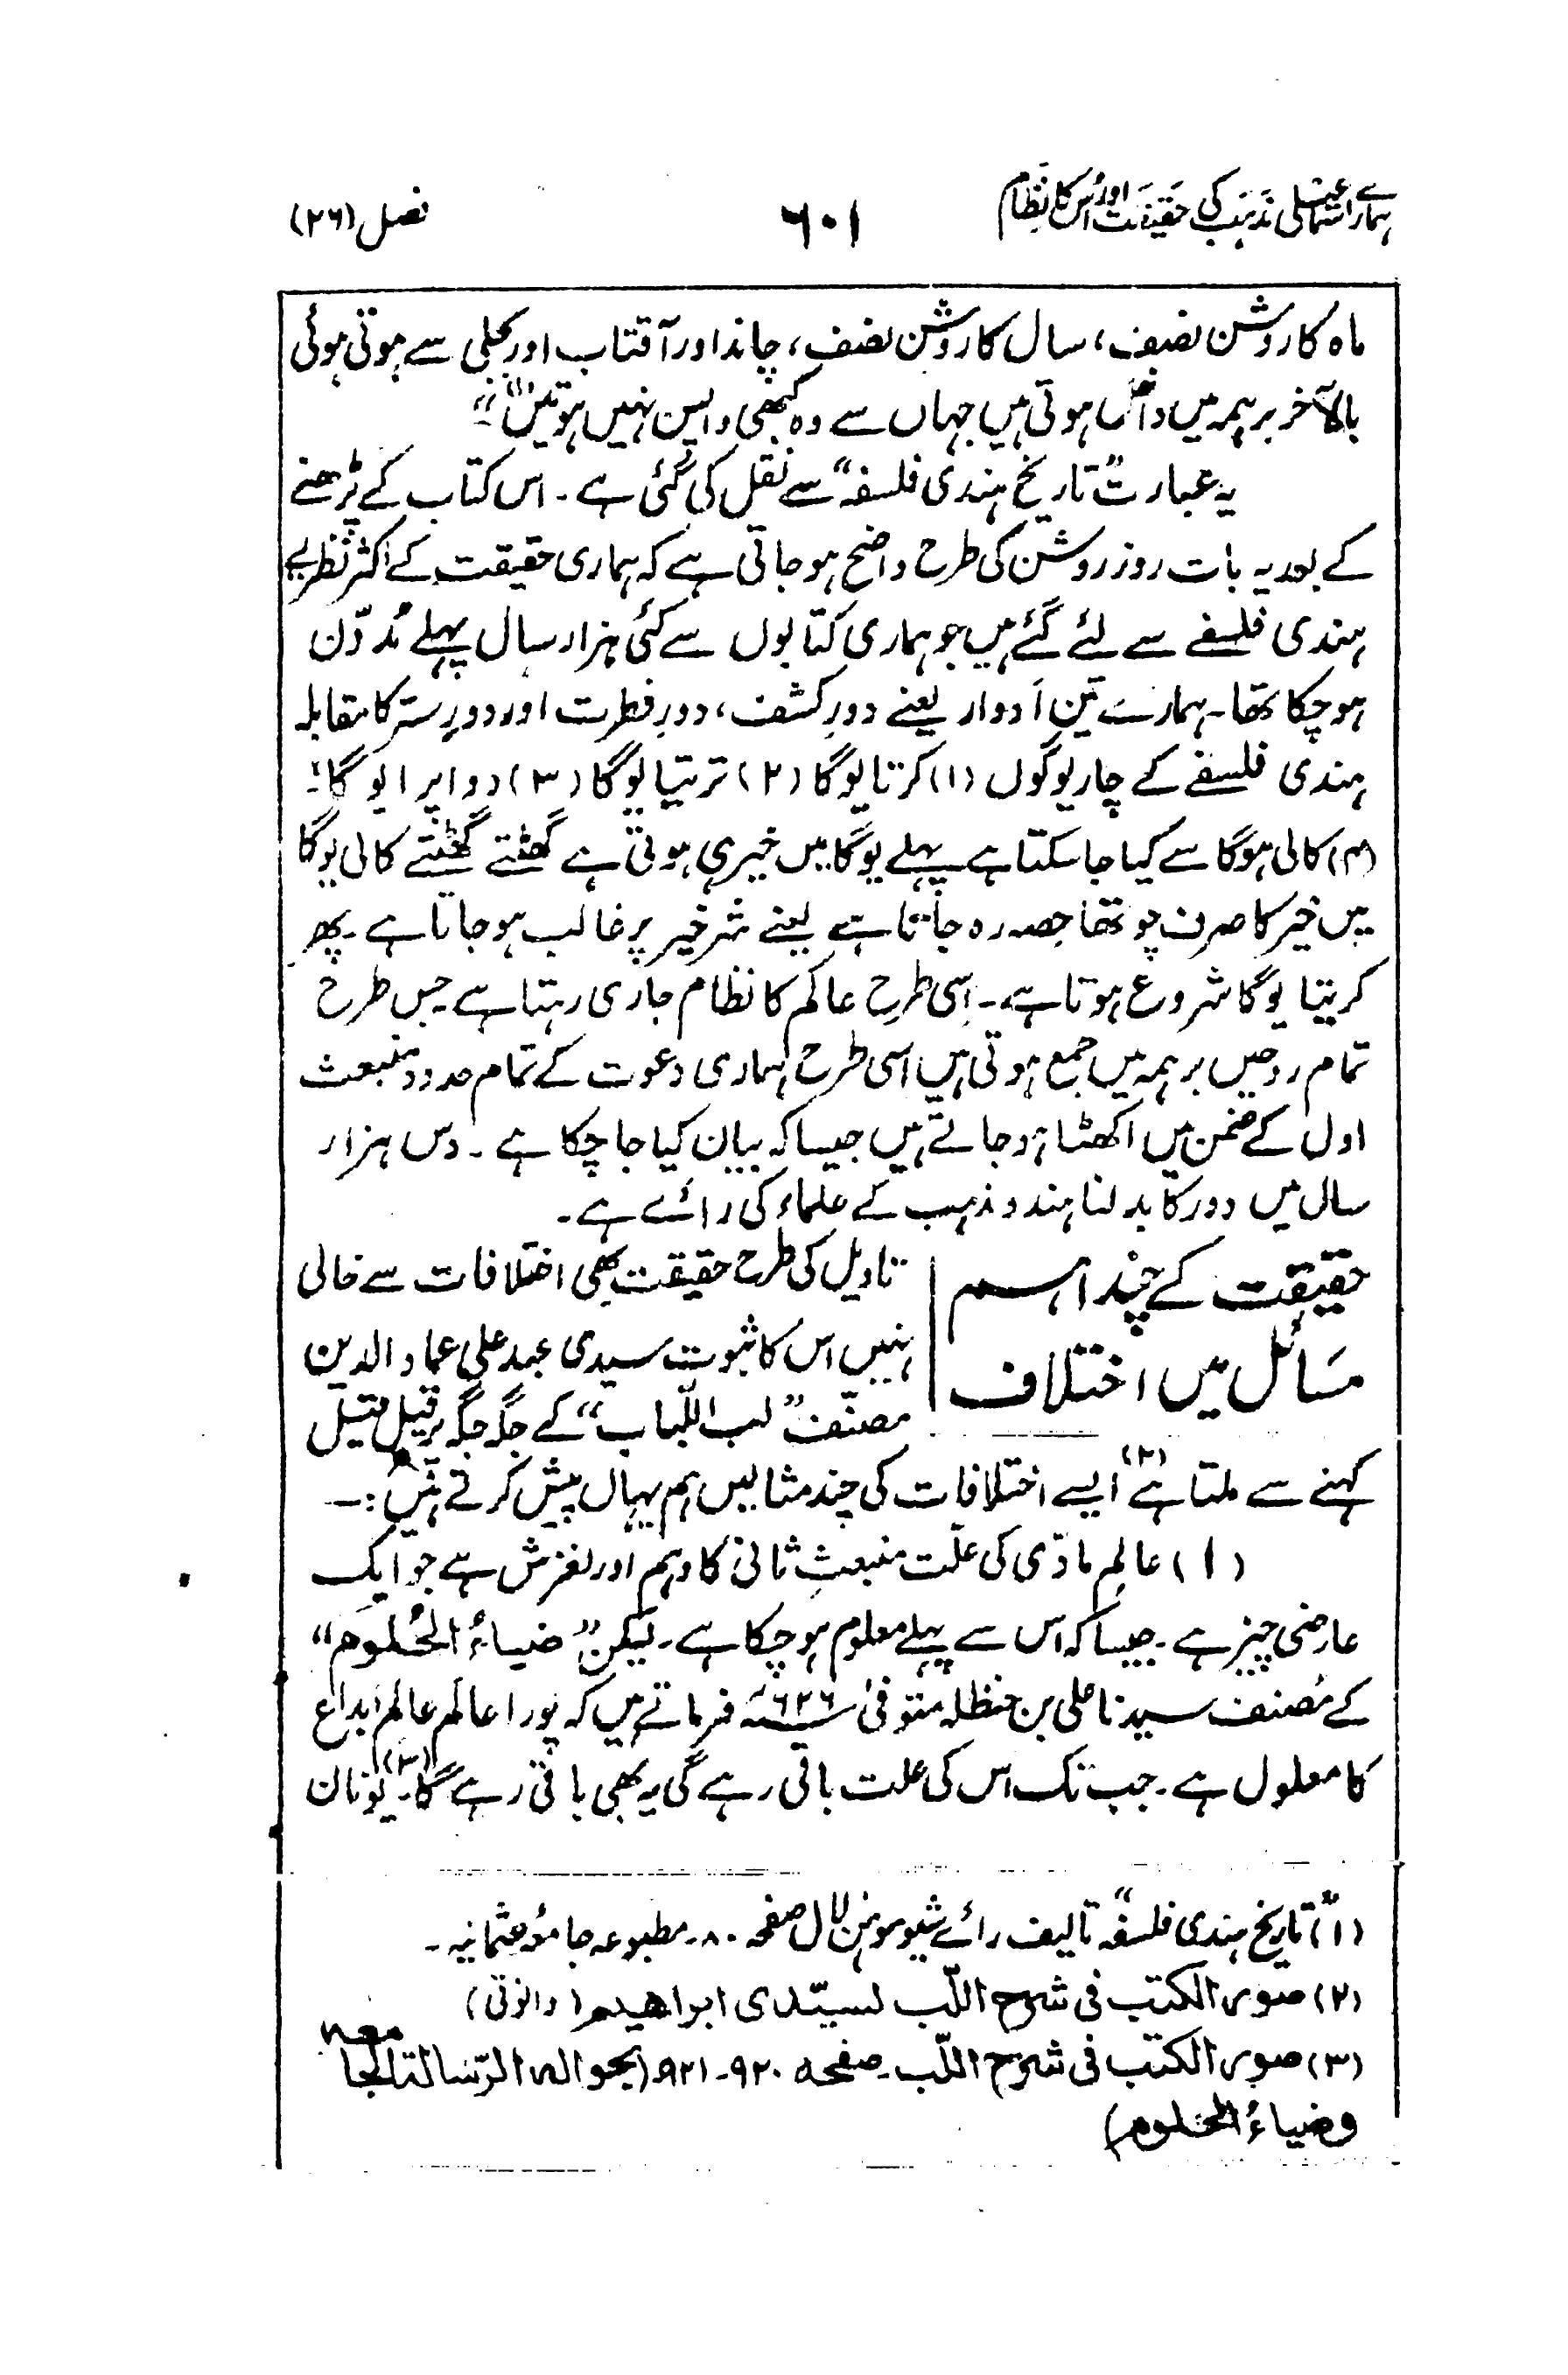 ہمارے اسماعیلی مذہب کی حقیقت اور اُس کا نظام
۶۰۱
فصل (۲۶)
ماہ کا روشن نصف، سال کا روشن نصف، چاند اور آفتاب اور بجلی سے ہوتی ہوئی
بالآخر برہمہ میں داخل ہوتی ہیں جہاں سے وہ کبھی واپس نہیں ہوتیں(۱)"
یہ عبارت "تاریخ ہندی فلسفہ" سے نقل کی گئی ہے۔ اس کتاب کے پڑھنے
کے بعد یہ بات روز روشن کی طرح واضح ہو جاتی ہے کہ ہماری حقیقت کے اکثر نظریے
ہندی فلسفے سے لئے گئے ہیں جو ہماری کتابوں سے کئی ہزار سال پہلے مُدوّن
ہو چکا تھا۔ ہمارے تین اَدوار یعنے دورِ کشف، دورِ فطرت اور دورِ ستر کا مقابلہ
ہندی فلسفے کے چار یوگوں (۱) کرتا یوگا (۲) ترتیا یوگا (۳) دواپرا یوگا؛
(۴) کالی ہوگا سے کیا جا سکتا ہے پہلے یوگا میں خیر ہی ہوتی ہے گھٹتے گھٹتے کالی یوگا
میں خیر کا صرف چوتھا حصہ رہ جاتا ہے یعنے شر خیر پر غالب ہو جاتا ہے۔ پھر
کریتا یوگا شروع ہوتا ہے۔ اِسی طرح عالَم کا نظام جاری رہتا ہے جس طرح
تمام روحیں برہمہ میں جمع ہوتی ہیں اسی طرح ہماری دعوت کے تمام حدود منبعث
اول کے ضمن میں اکھٹا ہو جاتے ہیں جیسا کہ بیان کیا جا چکا ہے۔ دس ہزار
سال میں دور کا بدلنا ہندو مذہب کے علماء کی رائے ہے۔
حقیقت کے چند اہم
مسَائل میں اختلاف
تاویل کی طرح حقیقت بھی اختلافات سے خالی
نہیں اس کا ثبوت سیدی عبد علی عماد الدین
مصنّف "لب اللّباب" کے جگہ جگہ پر قیل قیل
کہنے سے ملتا ہے(۲) ایسے اختلافات کی چند مثالیں ہم یہاں پیش کرتے ہیں:—
(۱) عالمِ مادّی کی علّت منبعثِ ثانی کا وہم اور لغزش ہے جو ایک
عارضی چیز ہے۔ جیسا کہ اس سے پہلے معلوم ہو چکا ہے۔ لیکن "ضیاءُ الحُلوم"
کے مُصنف سیدنا علی بن حنظلہ متوفیٰ ۶۲۶ھ فرماتے ہیں کہ پورا عالَم عالمِ ابداع
کا معلول ہے۔ جب تک اس کی علت باقی رہے گی یہ بھی باقی رہے گا۔(۳) یونان
(۱) "تاریخ ہندی فلسفہ" تالیف رائے شیو موہن لال صفحہ ۸۰۔ مطبوعہ جامعہ عثمانیہ۔
(۲) صور الکتب فی شرح اللّب لسیّدی ابراھیم (وانوتی)
(۳) صور الکتب فی شرح اللّب۔ صفحہ ۹۲۰-۹۲۱ (بحوالہ الرّسالۃ الجامعہ
وضیاءُ الحلوم)